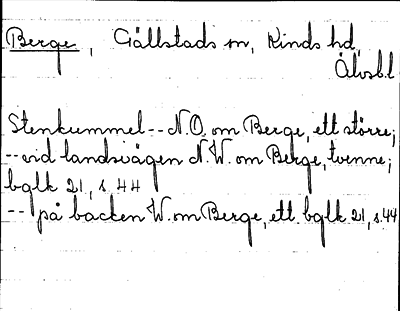 Berge, Gällstads sn, Kinds hd,
Älvsb.l
Stenkummel -- N.O. om Berge, ett större;
-- vid landsvägen N.W. om Berge, tvenne;
bglk 21, s. 44
-- på backen W. om Berge, ett. bglk 21, s. 44